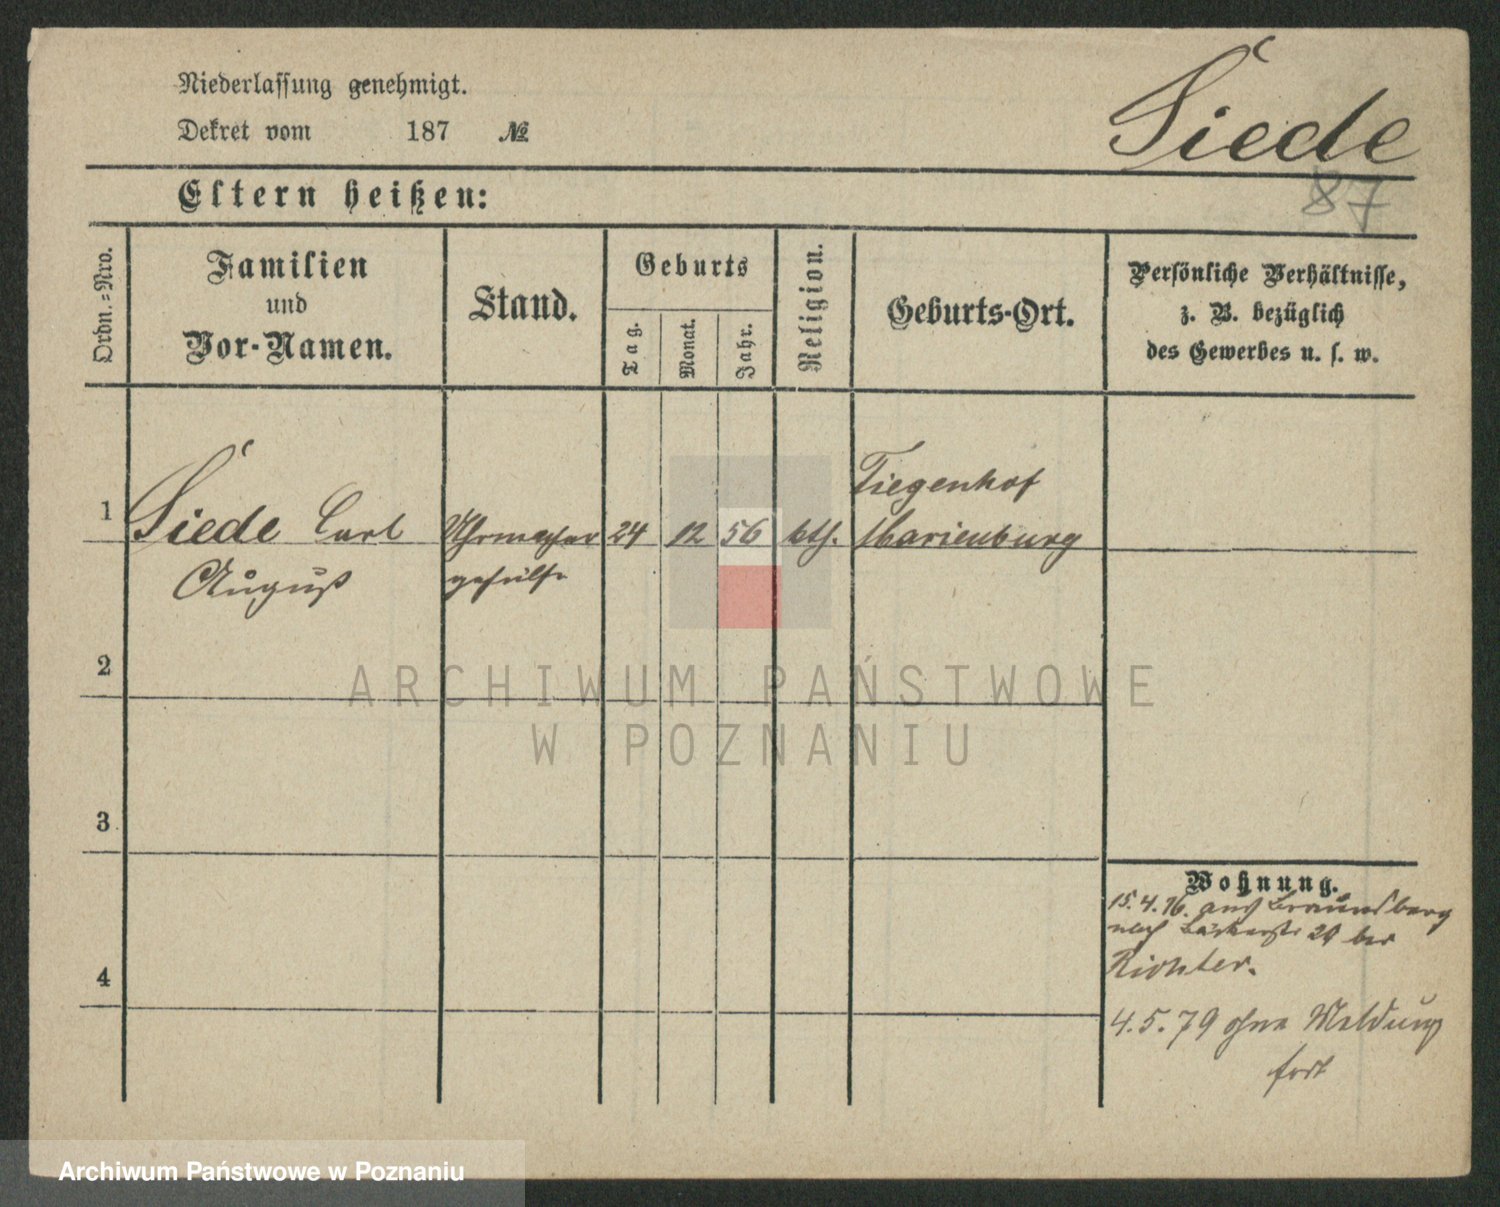 Niederlassung genehmigt.
Siede
Dekret vom 187 №
87
Eltern heißen:
Ordn.-Nro.
Familien
und
Vor-Namen.
Stand.
Geburts
Tag.
Monat.
Jahr.
Religion.
Geburts-Ort.
Persönliche Verhältnisse,
z. B. bezüglich
des Gewerbes u. s. w.
1
Siede Carl
August
Uhrmacher
gehülfe
24
12
56
kth.
Tiegenhof
Marienburg
2
3
4
Wohnung.
15.4.76. aus Braunsberg
nach Bäckerstr 20 bei
Richter.
4.5.79 ohne Meldung
fort
ARCHIWUM PAŃSTWOWE
W POZNANIU
Archiwum Państwowe w Poznaniu